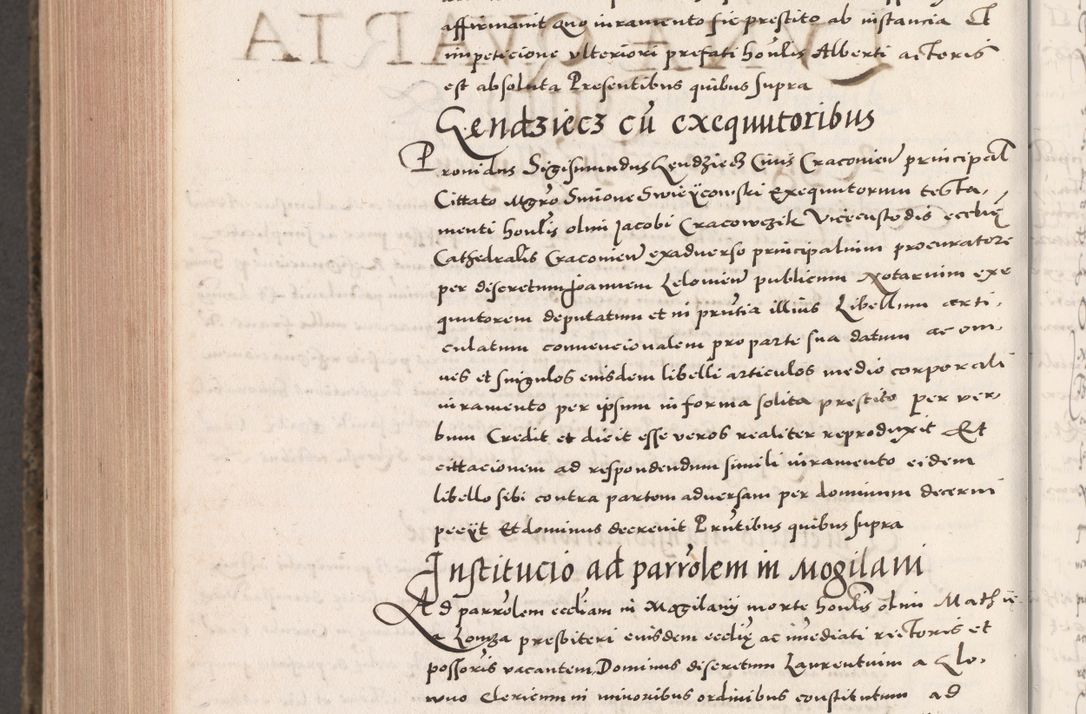 affirmavit quo iuramento sic prestito ab instancia Et
impeticione ulteriori prefati honlis Alberti actoris
est absoluta Presentibus quibus supra
Gendziecz cu exequutoribus
Providus Sigismundus Gendziecz Civis Cracovien principal
Cittato Mgro Simone Swieÿcowski exequutorum testa,
menti honlis olim Jacobi Cracowczik Vicecustodis ecclie
Cathedralis Cracovien exadverso principalium procuratore
per discretum Joannem Leloviens publicum Notarium exe
quutorem deputatum et in pntia illius Libellum arti,
culatum convencionalem pro parte sua datum ac om,
nes et singulos eiusdem libelli articulos medio corporali
iuramento per ipsum in forma solita prestito per ver,
bum Credit et dicit esse veros realiter reproduxit Et
cittacionem ad respondendum simili iuramento eidem
libello sibi contra partem adversam per dominum decerni
peciit Et dominus decrevit Pntibus quibus supra
Institucio ad parrolem in Mogilani
Ad parrolem eccliam in Mogilanij morte honlis olim Mathie
a Lomza presbiteri eiusdem ecclie ac imediati rectoris et
possoris vacantem, Dominus discretum Laurentium a Klo,
wno Clericum in minoribus ordinibus constitutum ad